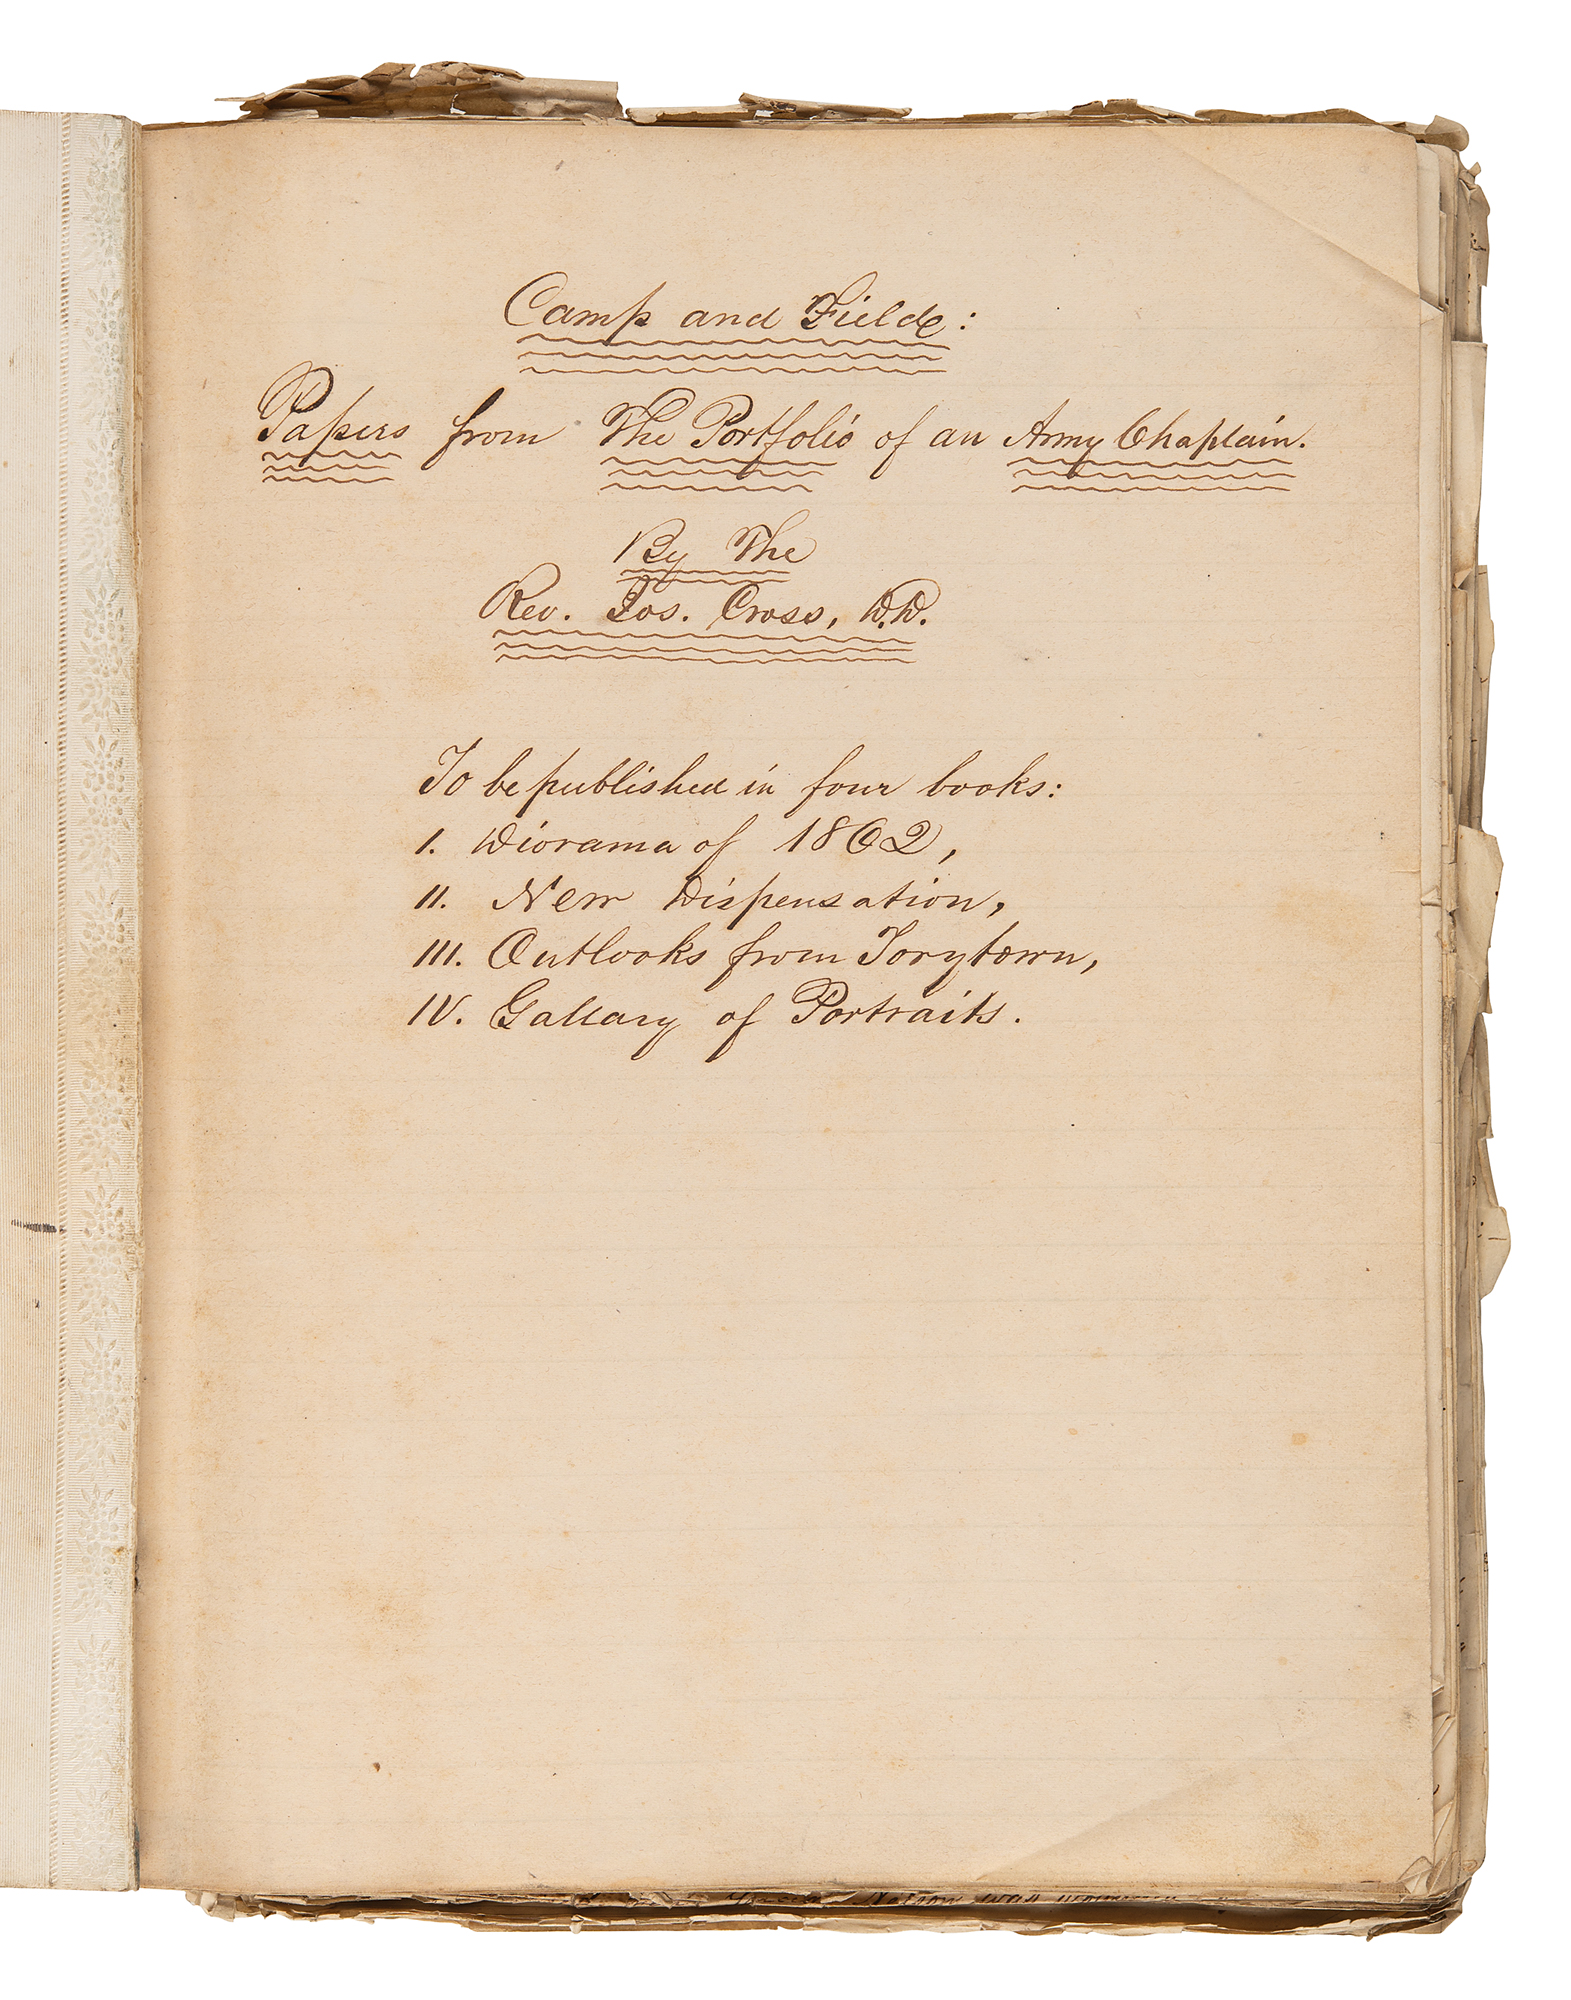 Camp and Field:
Papers from The Portfolio of an Army Chaplain.
By The
Rev. Jos. Cross, D.D.
To be published in four books:
I. Diorama of 1862,
II. New Dispensation,
III. Outlooks from Torytown,
IV. Gallary of Portraits.
Nelson was